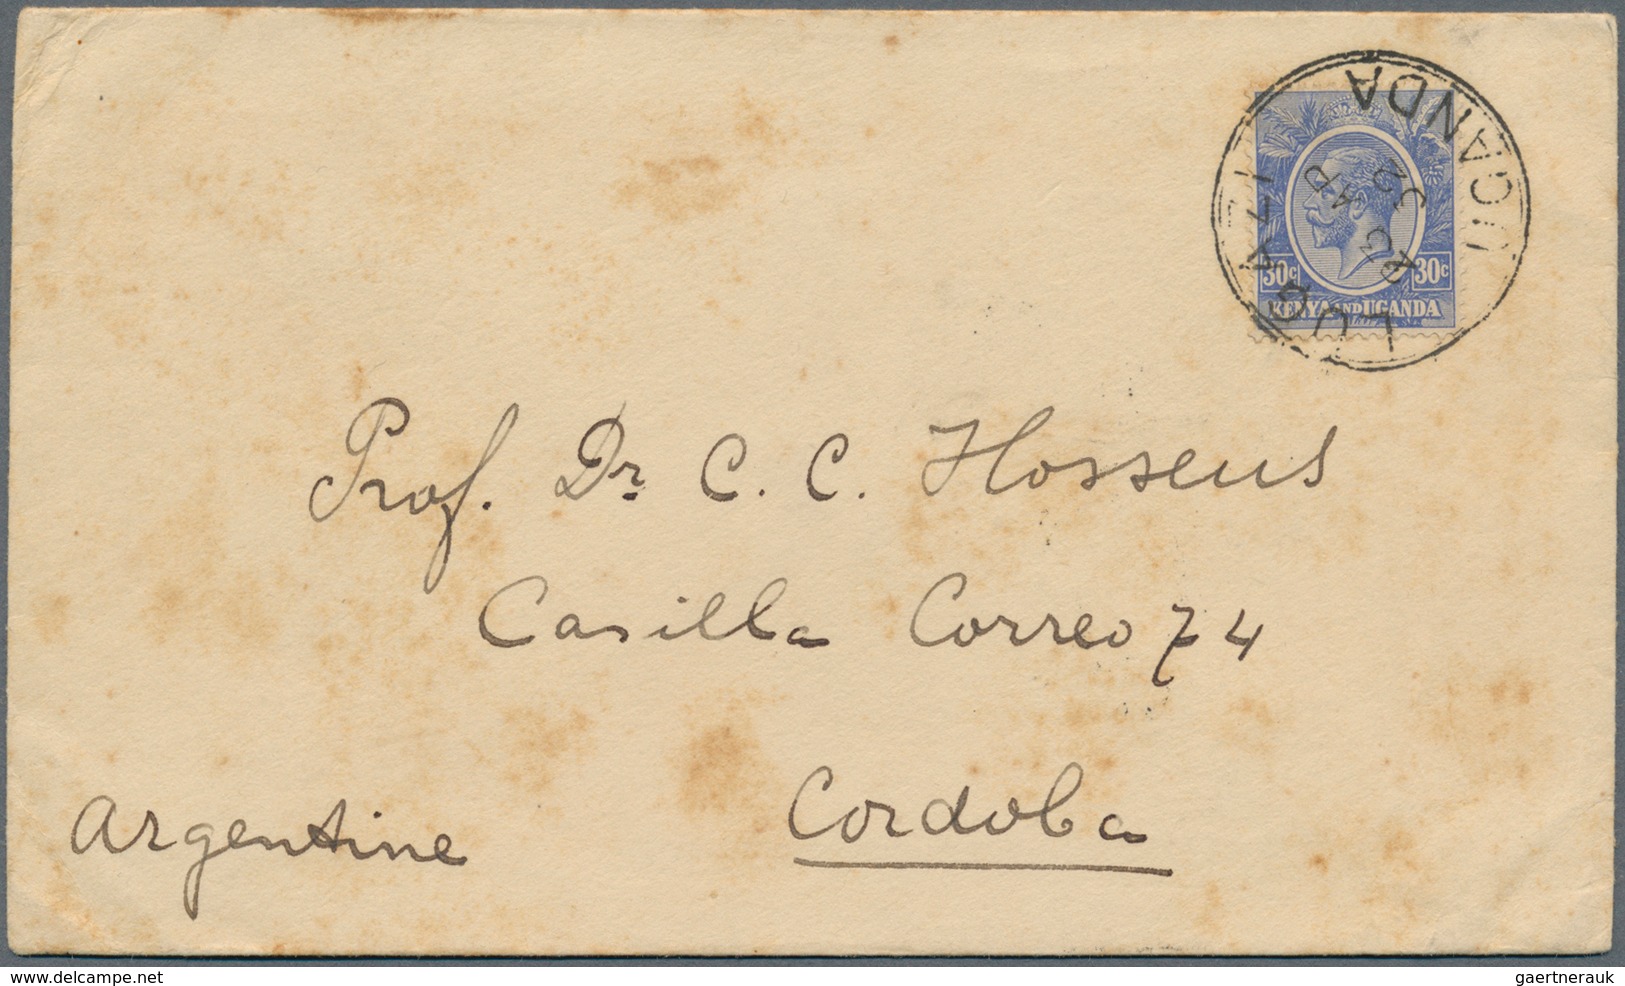 LUGAZI
UGANDA
23 AP
32
30c 30c
KENYA AND UGANDA
Prof. Dr. C. C. Hosseus
Casilla Correo 74
Cordoba
Argentine
www.delcampe.net
gaertnerauk